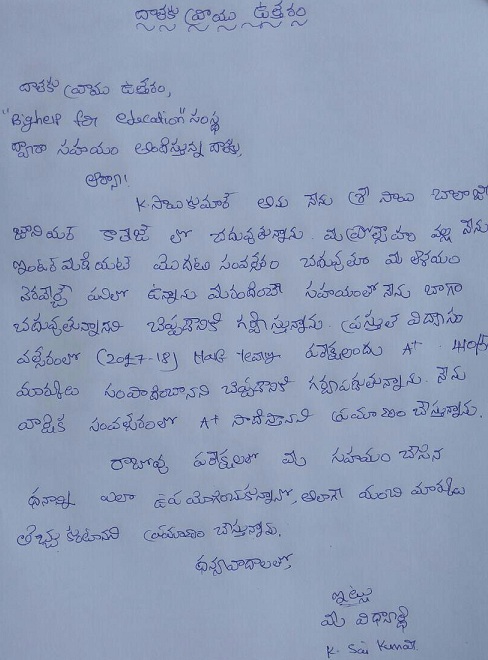 దాతకు వ్రాయు ఉత్తరం
దాతకు వ్రాయు ఉత్తరం,
"Bighelp for education" సంస్థ
ద్వారా సహయం అందిస్తున్న దాతకు,
K. సాయి కుమార్ అను నేను శ్రీ సాయి బాలాజీ
జూనియర్ కాలేజీ లో చదువుతున్నాను. మీ ప్రోత్సాహం వల్ల నేను
ఇంటర్ మీడియట్ మొదటి సంవత్సరం చదువుతూ మీ ఆశయం
నెరవేర్చే పనిలో ఉన్నాను మీరందించే సహయంతో నేను బాగా
చదువుతున్నానని చెప్పడానికి గర్విస్తున్నాను. ప్రస్తుత విద్యాసం
వత్సరంలో (2017-18) Half Yearly పరీక్షలందు A+ 440/5
మార్కులు సంపాదించానని చెప్పడానికి గర్వపడుతున్నాను. నేను
వార్షిక సంవత్సరంలో A+ సాధిస్తానని ప్రమాణం చేస్తున్నాను.
రాబోవు పరీక్షలలో మీ సహయం చేసిన
ధనాన్ని ఎలా ఉపయోగించుకున్నానో, అలాగే మంచి మార్కులు
తెచ్చు కుంటానని ప్రమాణం చేస్తున్నాను.
ధన్యవాదాలతో,
ఇట్లు
మీ విద్యార్థి
K. Sai Kumar.